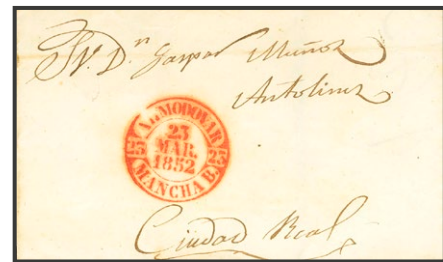 Sr. Dn. Gaspar Muñoz
Antolinez
ALMODOVAR
23
MAR.
1852
25 25
MANCHA B.
Ciudad Real